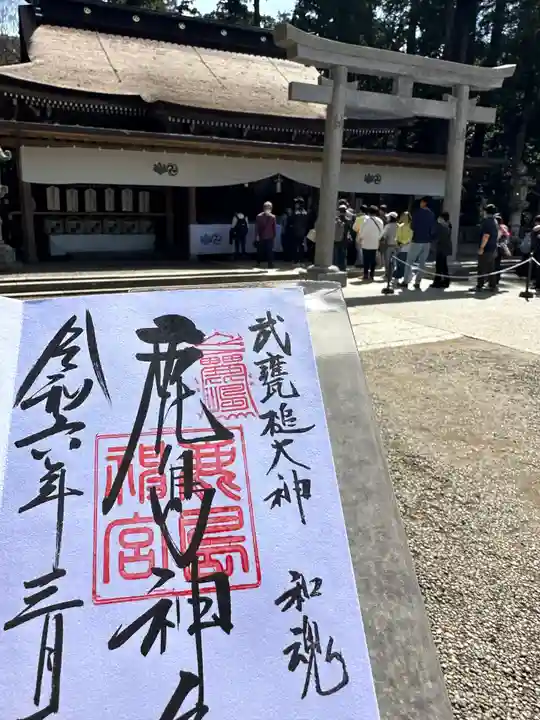 武甕槌大神
和魂
鹿島神宮
鹿島神
令和六年三月